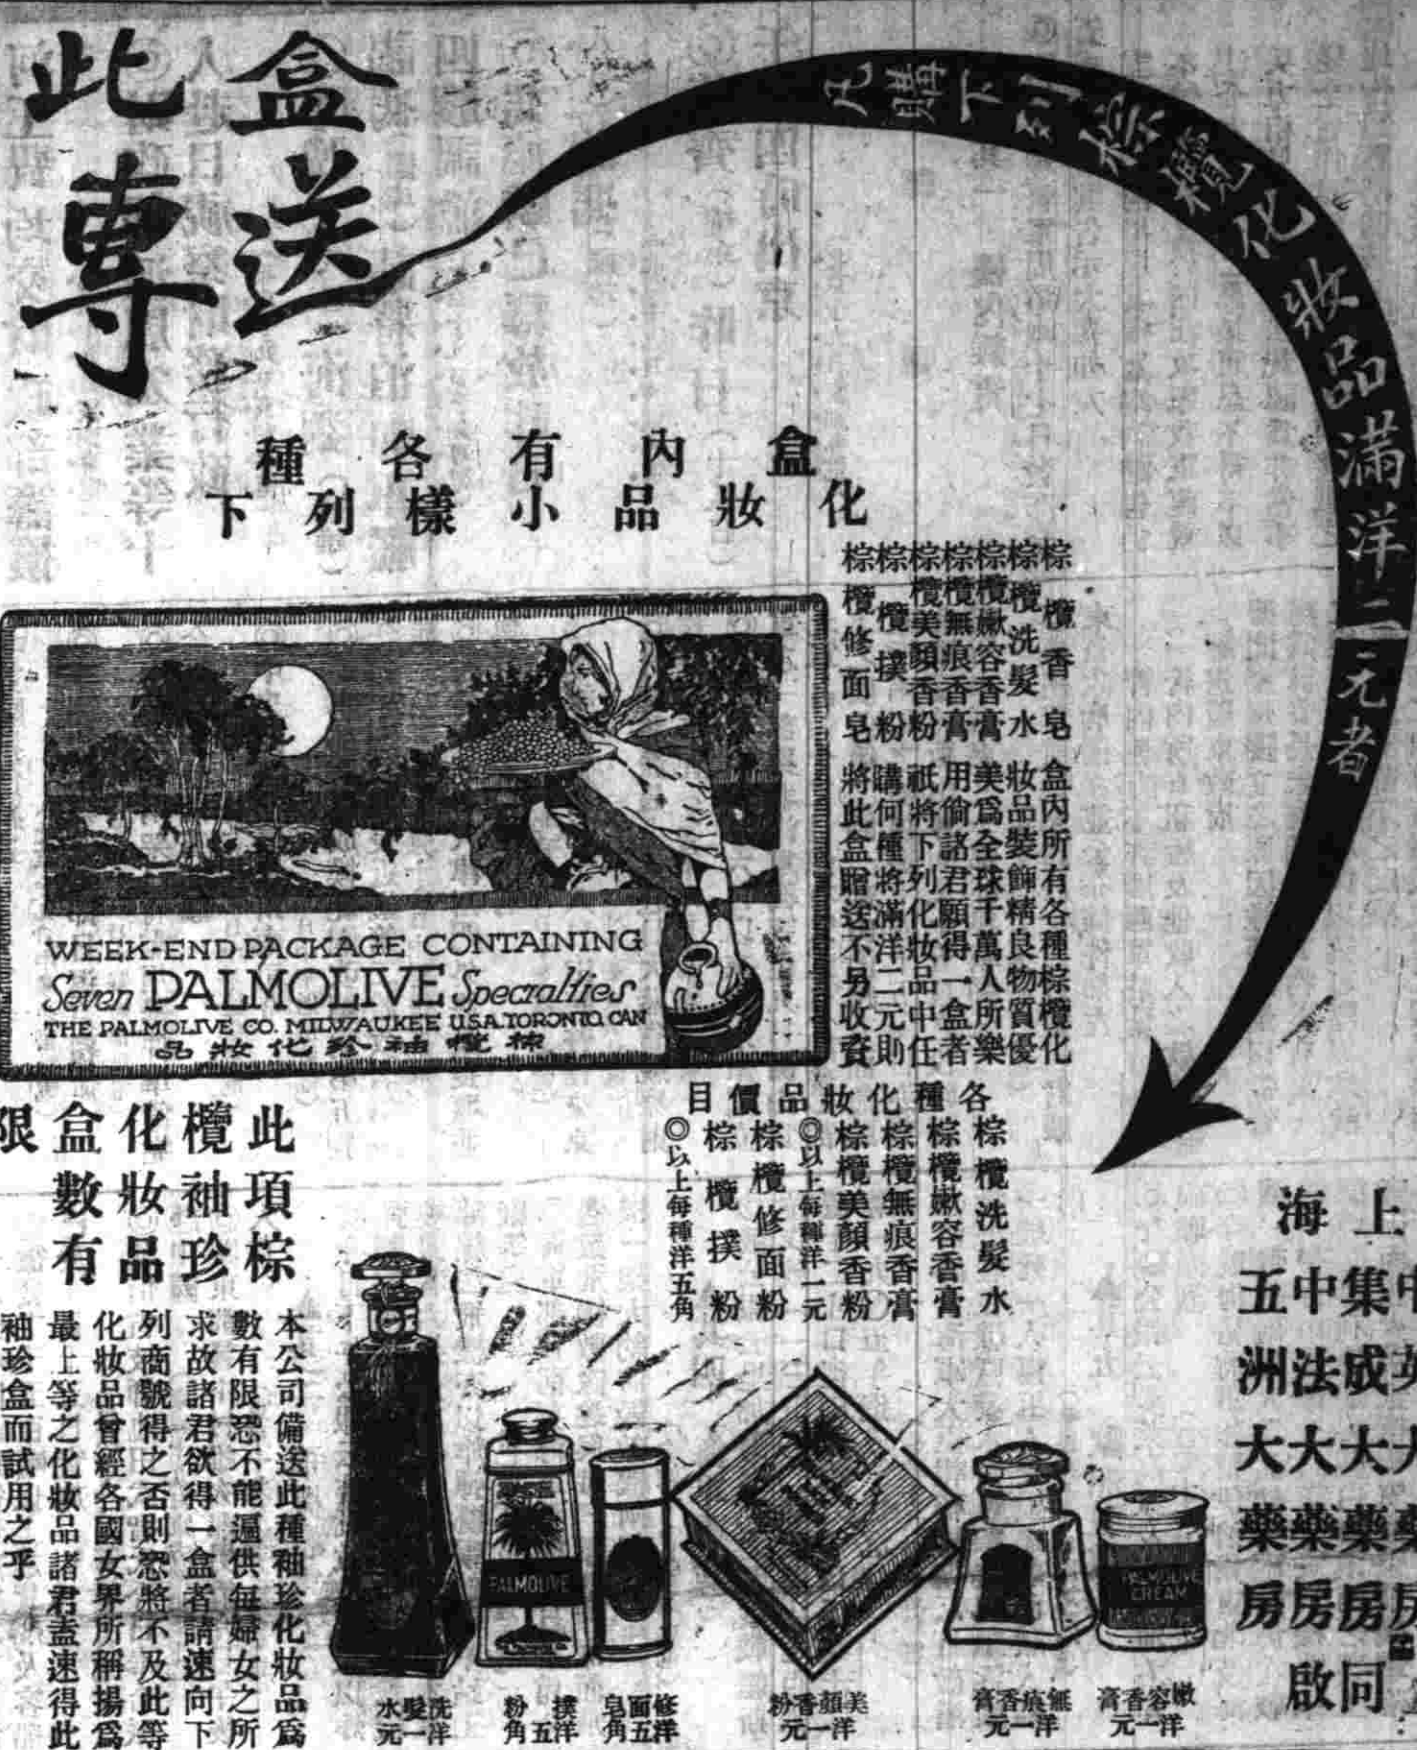 凡購下列棕欖化妝品滿洋二元者
此盒
專送
盒內有各種
化妝品小樣列下
棕欖香皂
棕欖洗髮水
棕欖嫩容香膏
棕欖無痕香膏
棕欖美顏香粉
棕欖撲粉
棕欖修面皂
盒內所有各種棕欖化
妝品裝飾精良物質優
美爲全球千萬人所樂
用倘諸君願得一盒者
祇將下列化妝品中任
購何種將滿洋二元則
將此盒贈送不另收費
WEEK-END PACKAGE CONTAINING
Seven PALMOLIVE Specialties
THE PALMOLIVE CO. MILWAUKEE U.S.A. TORONTO. CAN
棕欖袖珍化妝品
各種化妝品價目
棕欖洗髮水
棕欖嫩容香膏
棕欖無痕香膏
棕欖美顏香粉
◎以上每種洋一元
棕欖修面粉
棕欖撲粉
◎以上每種洋五角
此項棕
欖袖珍
化妝品
盒數有
限
本公司備送此種袖珍化妝品爲
數有限恐不能遍供每婦女之所
求故諸君欲得一盒者請速向下
列商號得之否則恐將不及此等
化妝品曾經各國女界所稱揚爲
最上等之化妝品諸君盍速得此
袖珍盒而試用之乎
PALMOLIVE
PALMOLIVE
CREAM
洗髮水
洋一元
撲粉
洋五角
修面皂
洋五角
美顏香粉
洋一元
無痕香膏
洋一元
嫩容香膏
洋一元
上海
集成大藥房
中法大藥房
五洲大藥房
同啟